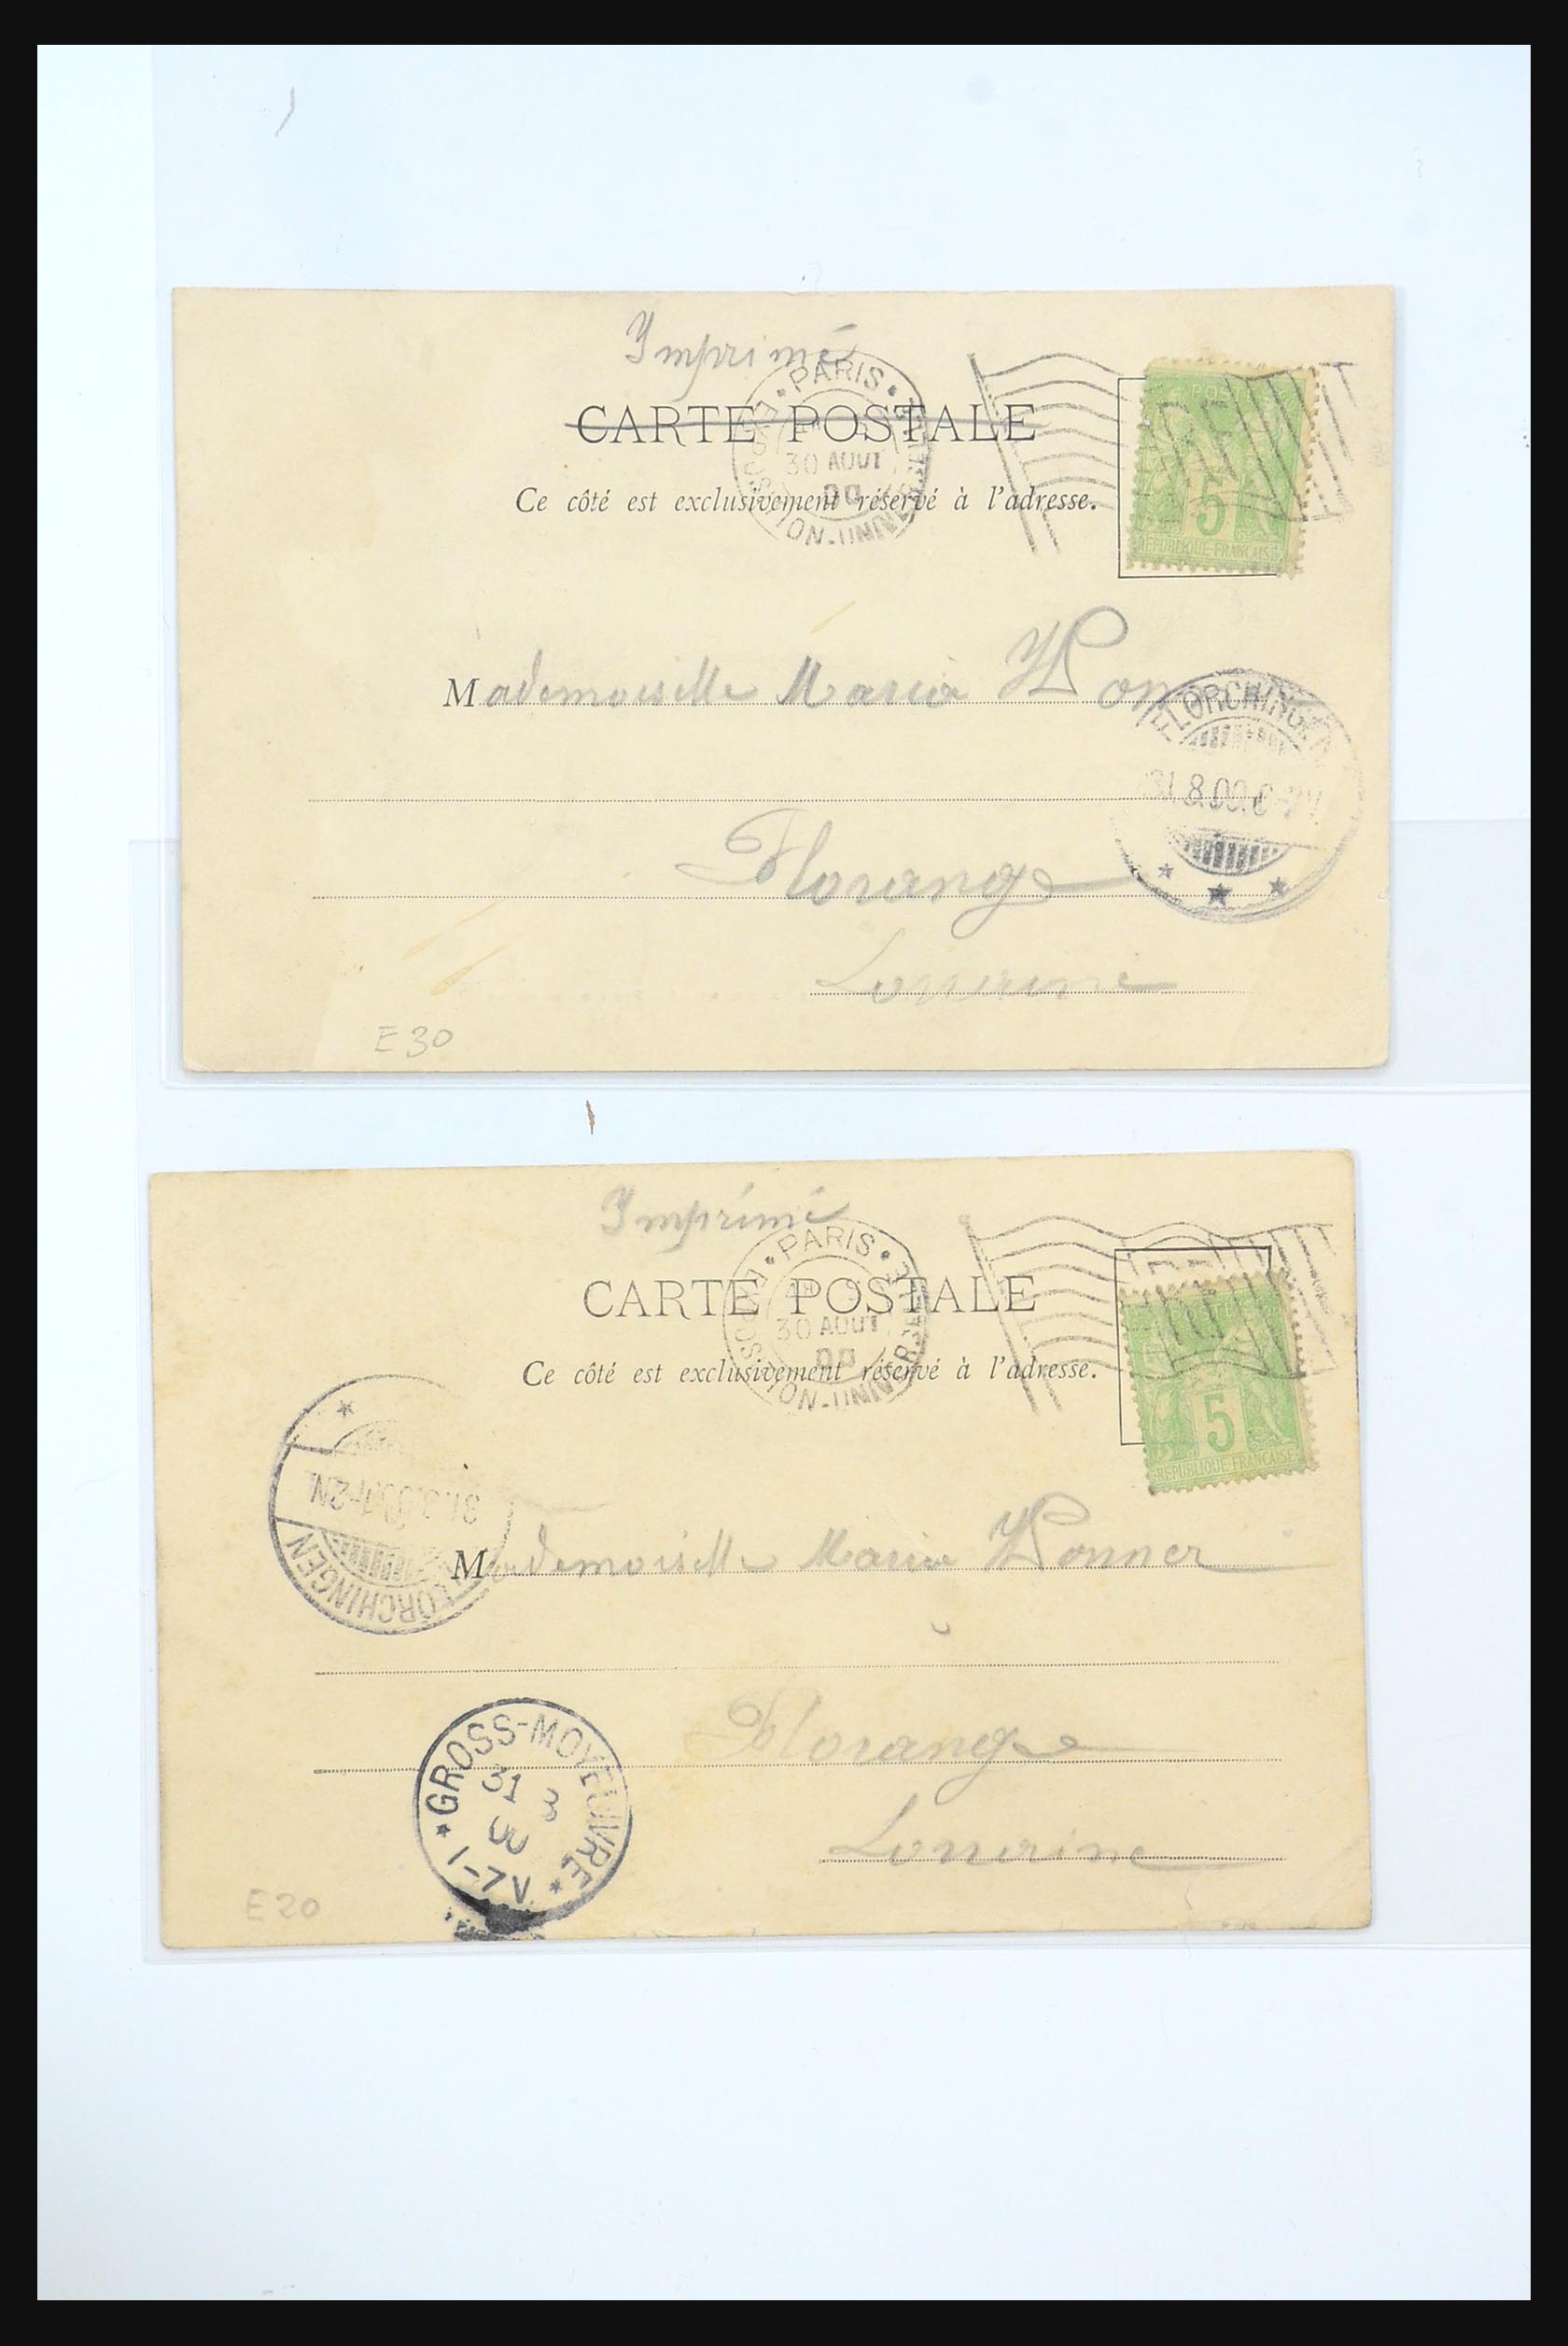 Imprimé
PARIS
EXPOSITION-UNIVERSELLE
30 AOUT
00
RF
POSTES
5
REPUBLIQUE FRANCAISE
CARTE POSTALE
Ce côté est exclusivement réservé à l'adresse.
Mademoiselle Maria
FLORCHINGEN
31.8.00.
Florange
Lorraine
E30
Imprimé
PARIS
EXPOSITION-UNIVERSELLE
30 AOUT
00
RF
5
REPUBLIQUE FRANCAISE
CARTE POSTALE
Ce côté est exclusivement réservé à l'adresse.
FLORCHINGEN
31.8.00.1-2N.
Mademoiselle Maria Wonner
Florange
GROSS-MOYEUVRE
31 8
00
1-7V.
Lorraine
E20